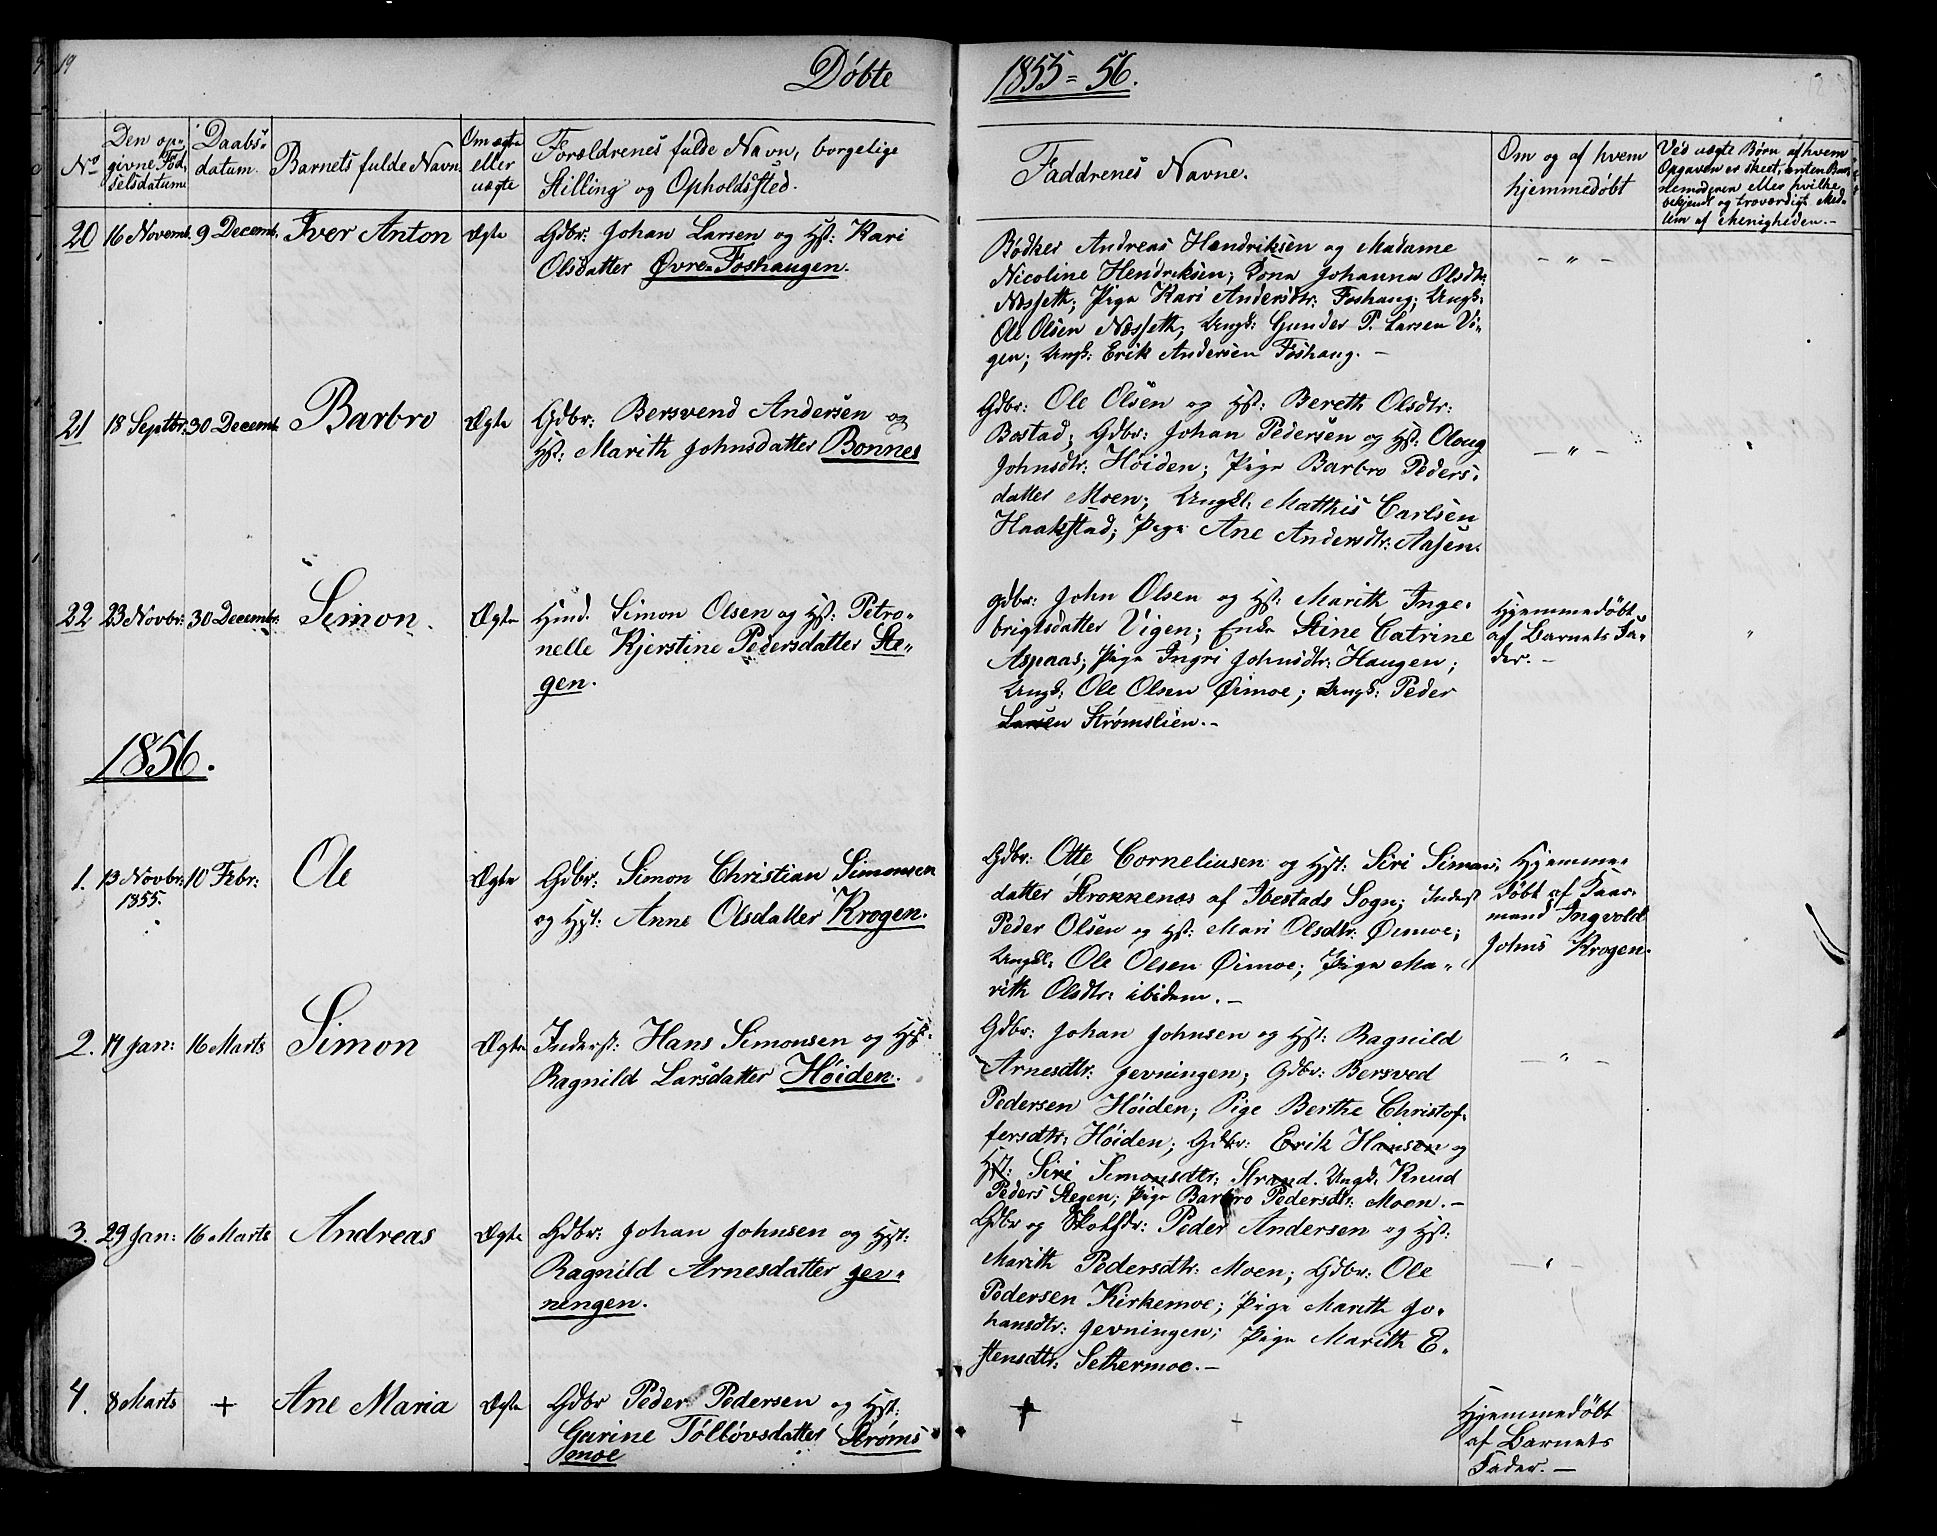 19
Døbte
1855=56.
No
Den opgivne Fødselsdatum
Daabsdatum.
Barnets fulde Navn
Om ægte eller uægte
Forældrenes fulde Navn, borgelige
Stilling og Opholdssted.
Faddrenes Navne.
Om og af hvem
hjemmedøbt
Ved uægte Børn af hvem
Opgaven er skeet, enten Bar-
nemoderen eller hvilke
bekjendt og troværdigt Med-
lem af Menigheden.-
20 16 Novemb. 9 Decemb. Iver Anton Ægte
Gdbr: Johan Larsen og Hst: Kari
Olsdatter Øvre=Foshaugen.
Bødker Andreas Hendriksen og Madame
Nicoline Hendriksen; Kona Johanna Olsdtr:
Næsseth; Pige Kari Andersdtr: Foshaug; Ungk:
Ole Olsen Næsseth; Ungk: Gunder P. Larsen Vi-
gen; Ungk: Erik Andersen Foshaug. -
- " -
21 18 Septbr: 30 Decemb. Barbro Ægte
Gdbr: Bersvend Andersen og
Hst: Marith Johnsdatter Bonnes
Gdbr: Ole Olsen og Hst: Bereth Olsdtr:
Bostad; Gdbr: Johan Pedersen og Hst: Oloug
Johnsdtr: Høiden; Pige Barbro Peders-
datter Moen; Ungkl: Matthis Carlsen
Haakstad; Pige Ane Andersdtr: Aasen.
- " -
22 23 Novbr: 30 Decembr: Simon. Ægte
Hmd. Simon Olsen og Hst: Petro-
nelle Kjerstine Pedersdatter Ste-
gen.
Gdbr: John Olsen og Hst: Marith Inge-
brigtsdatter Vigen; Enke Stine Catrine
Aspaas; Pige Ingri Johnsdtr: Haugen;
Ungk: Ole Olsen Øimoe; Ungk: Peder
Larsen Strømslien.-
Hjemmedøbt
af Barnets Fa-
der. -
"
1856.
1. 13 Novbr: 1855. 10 Febr: Ole Ægte
Gdbr: Simon Christian Simonsen
og Hst: Anne Olsdatter Krogen.
Gdbr: Otte Corneliusen og Hst: Siri Simons-
datter Strokkenæs af Ibestads Sogn; Inderst
Peder Olsen og Hst: Mari Olsdtr: Øimoe;
Ungkl: Ole Olsen Øimoe; Pige Ma-
rith Olsdtr: ibidem. -
Hjemme-
døbt af Kaar-
mand Ingvold
Johns Krogen.
2. 17 Jan: 16 Marts Simon Ægte
Inderst: Hans Simonsen og Hst:
Ragnild Larsdatter Høiden.
Gdbr: Johan Johnsen og Hst: Ragnild
Arnesdtr: Jevningen; Gdbr: Bersved
Pedersen Høiden; Pige Berthe Christof-
fersdtr: Høiden; Gdbr: Erik Hansen og
Hst: Siri Simonsdtr: Strand. Ungk: Knud
Peders Stegen; Pige Barbro Pedersdtr: Moen. -
- " -
3. 29 Jan: 16 Marts Andreas Ægte
Gdbr: Johan Johnsen og Hst:
Ragnild Arnesdatter Jev-
ningen.
Gdbr og Skolsdr: Peder Andersen og Hst:
Marith Pedersdtr: Moen; Gdbr: Ole
Pedersen Kirkemoe; Pige Marith Jo-
hansdtr: Jevningen; Pige Marith E-
stensdtr: Sethermoe. -
4. 8 Marts + Ane Maria Ægte
Gdbr Peder Pedersen og Hst:
Gurine Tølløvsdatter Strøms
moe
+
+
Hjemmedøbt
af Barnets
Fader. -